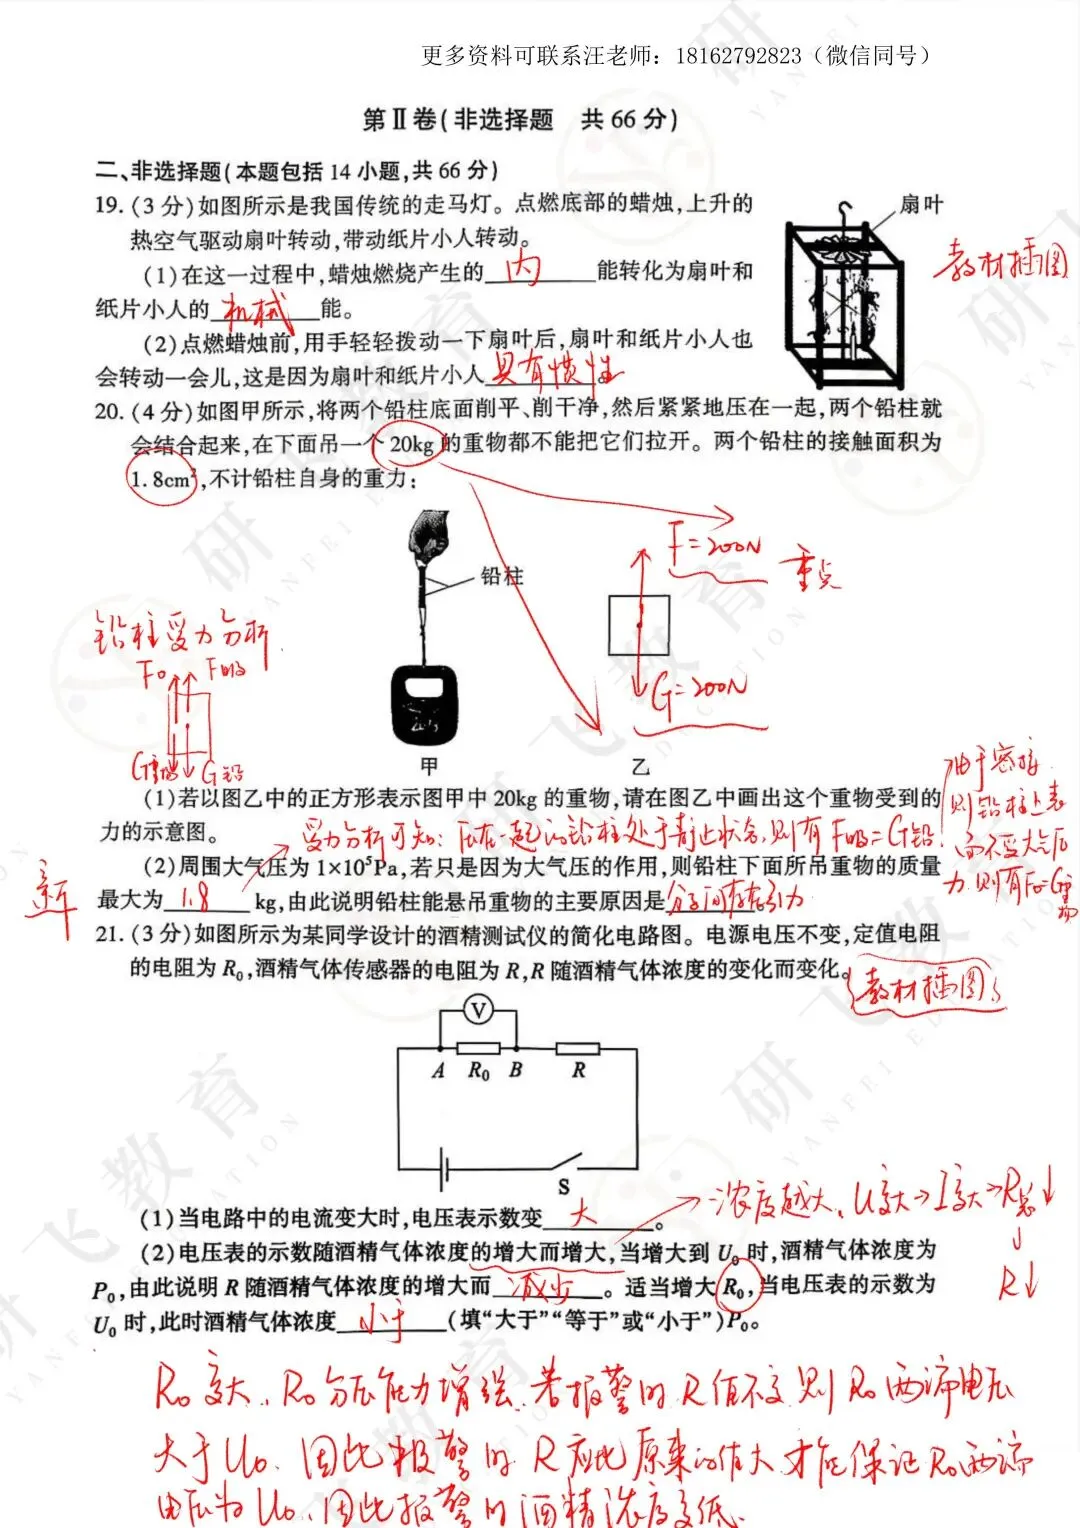 更多资料可联系汪老师：18162792823（微信同号）
第Ⅱ卷(非选择题 共66分)
二、非选择题(本题包括14小题,共66分)
19.(3分)如图所示是我国传统的走马灯。点燃底部的蜡烛,上升的
热空气驱动扇叶转动,带动纸片小人转动。
扇叶
教材插图
(1)在这一过程中,蜡烛燃烧产生的 内 能转化为扇叶和
纸片小人的 机械 能。
(2)点燃蜡烛前,用手轻轻拨动一下扇叶后,扇叶和纸片小人也
会转动一会儿,这是因为扇叶和纸片小人 具有惯性 。
20.(4分)如图甲所示,将两个铅柱底面削平、削干净,然后紧紧地压在一起,两个铅柱就
会结合起来,在下面吊一个20kg的重物都不能把它们拉开。两个铅柱的接触面积为
1.8cm²,不计铅柱自身的重力;
铅柱
F=200N
重点
G=200N
铅柱受力分析
F0 F吸
G重物 G铅
甲
乙
(1)若以图乙中的正方形表示图甲中20kg的重物,请在图乙中画出这个重物受到的
力的示意图。
受力分析可知：压在一起的铅柱处于静止状态,则有F吸=G铅.
由于密接
则铅柱上表
面不受大气压
力.则有F0=G重物
(2)周围大气压为1×10⁵Pa,若只是因为大气压的作用,则铅柱下面所吊重物的质量
最大为 1.8 kg,由此说明铅柱能悬吊重物的主要原因是 分子间存在引力
21.(3分)如图所示为某同学设计的酒精测试仪的简化电路图。电源电压不变,定值电阻
的电阻为R₀,酒精气体传感器的电阻为R,R随酒精气体浓度的变化而变化。
教材插图
V
A R₀ B R
S
(1)当电路中的电流变大时,电压表示数变 大 。
浓度越大、U变大→I变大→R总↓
↓
R↓
(2)电压表的示数随酒精气体浓度的增大而增大,当增大到U₀时,酒精气体浓度为
P₀,由此说明R随酒精气体浓度的增大而 减少 。适当增大R₀,当电压表的示数为
U₀时,此时酒精气体浓度 小于 (填“大于”“等于”或“小于”)P₀。
R₀变大、R₀分压能力增强.若报警的R值不变则R₀两端电压
大于U₀.因此报警的R应比原来的值大.才能保证R₀两端
电压为U₀、因此报警的酒精浓度变低.